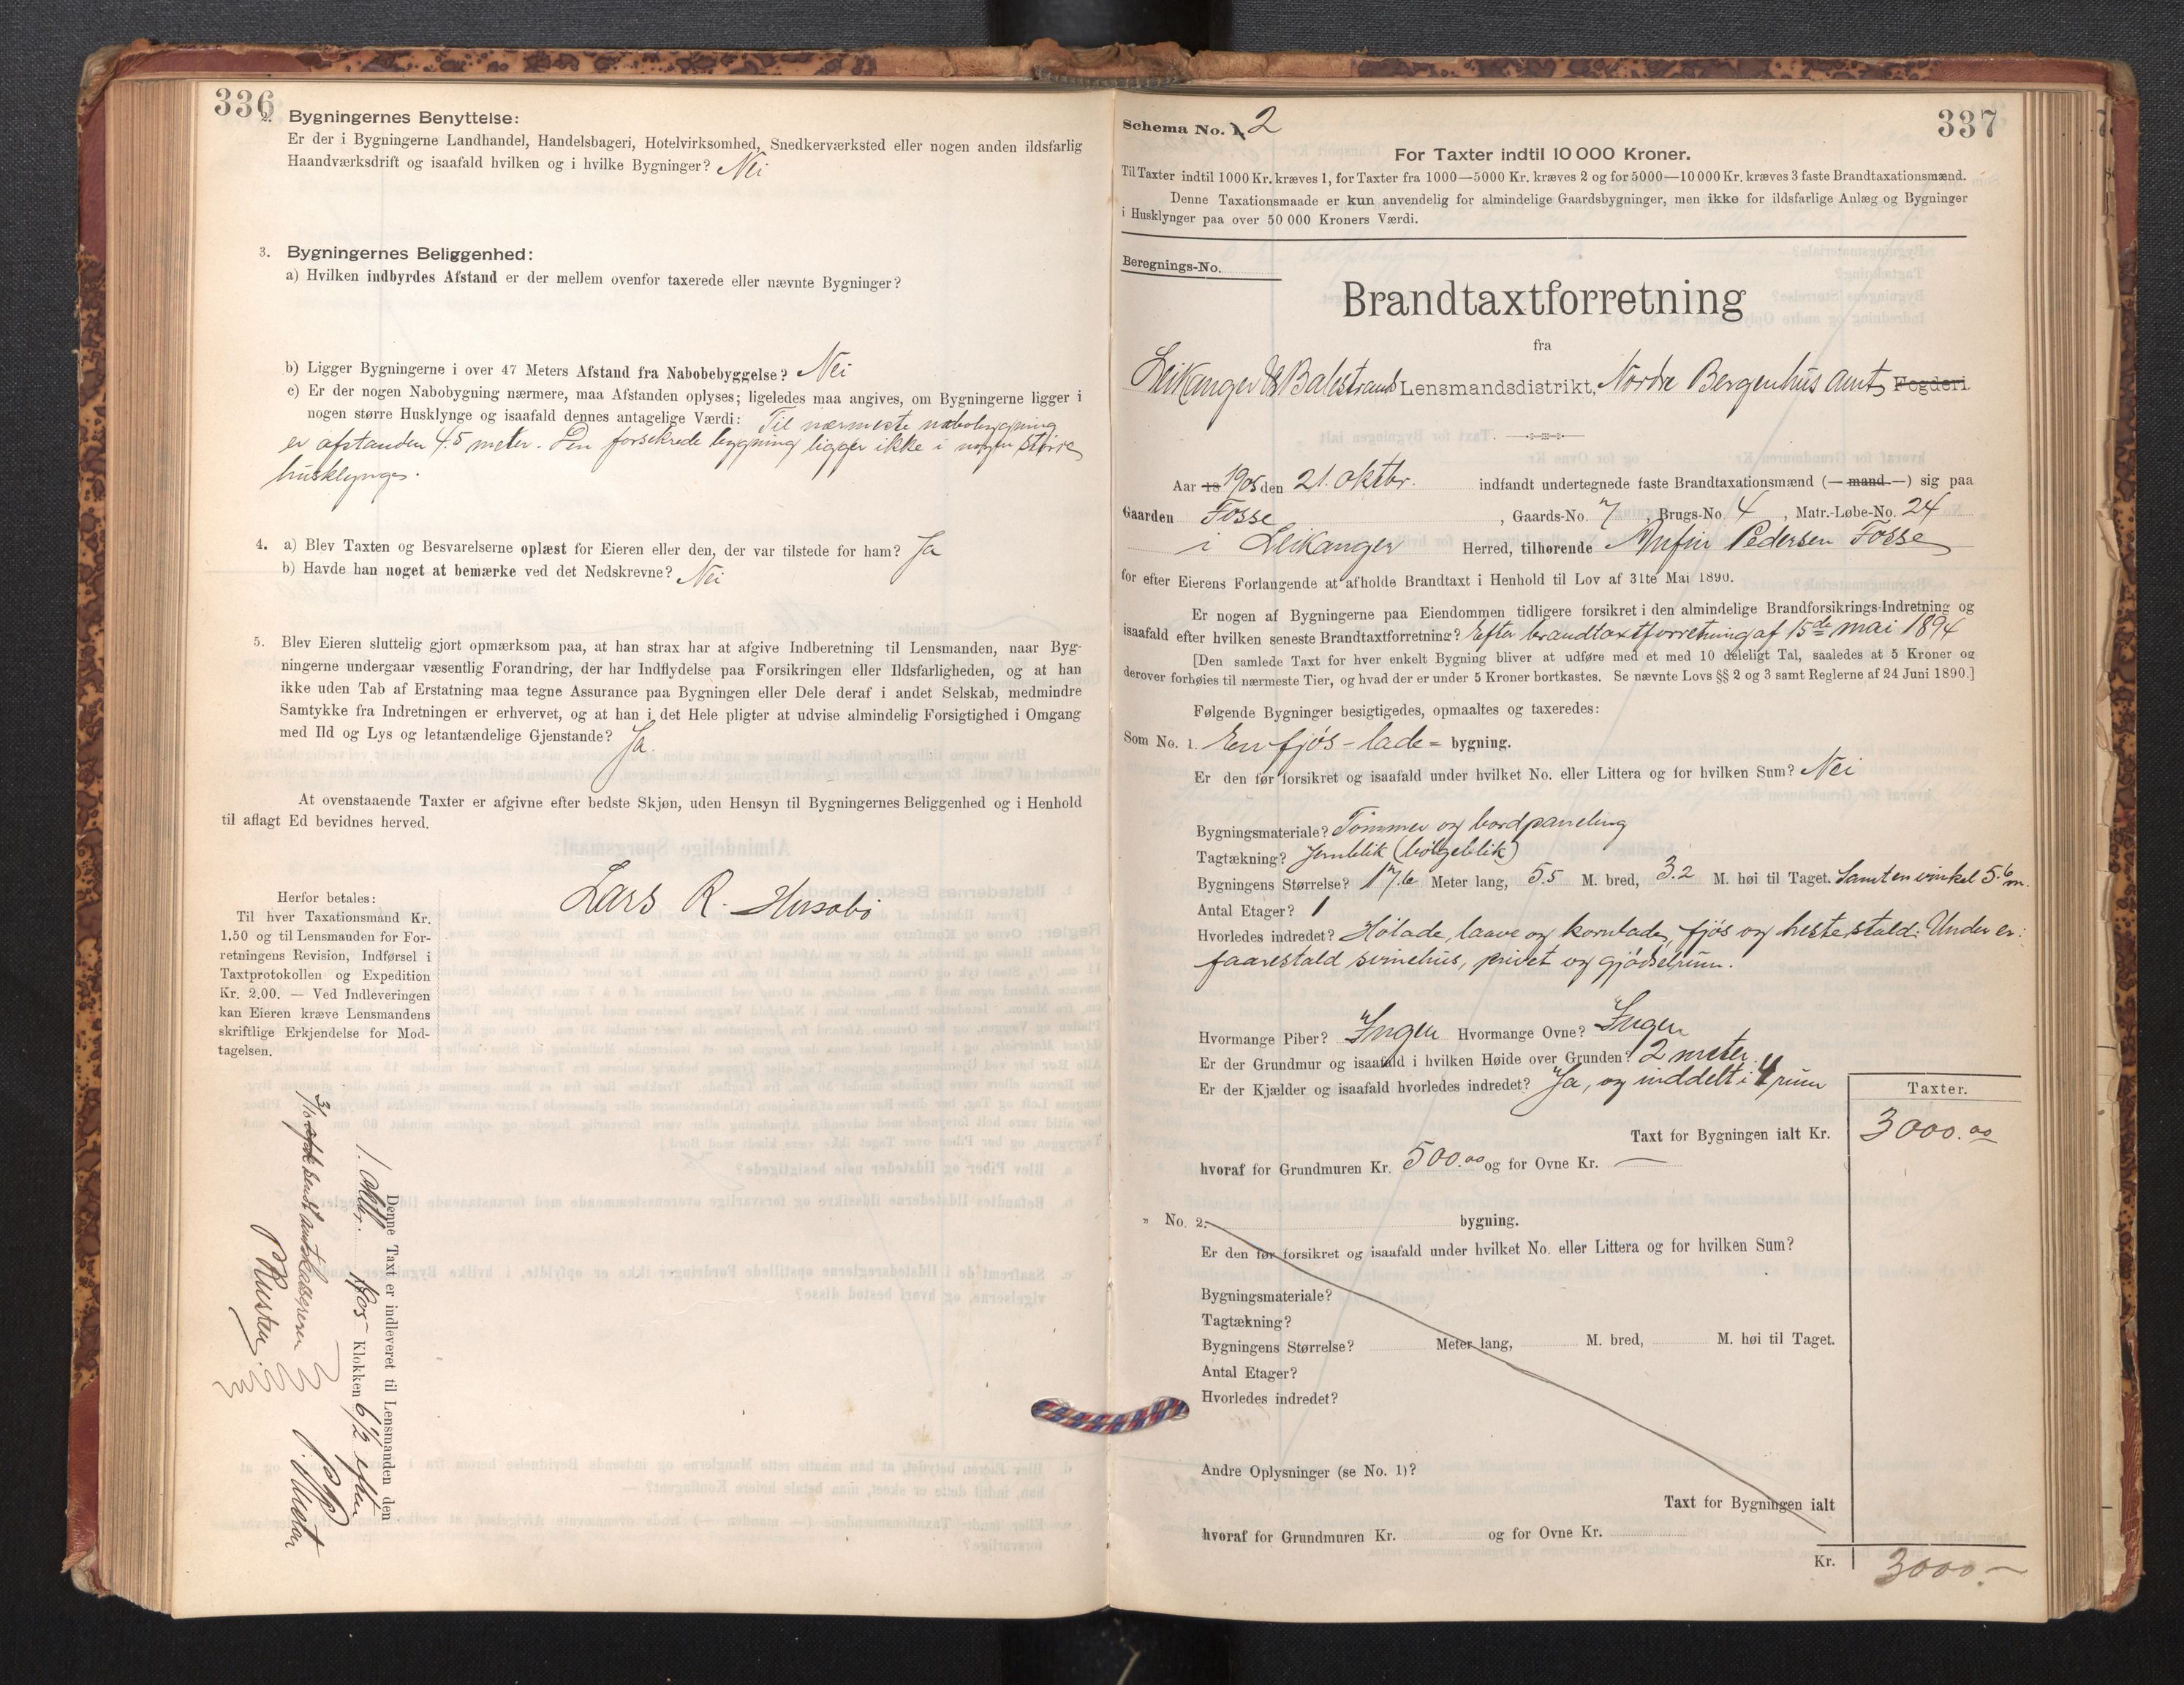 336
2. Bygningernes Benyttelse:
Er der i Bygningerne Landhandel, Handelsbageri, Hotelvirksomhed, Snedkerværksted eller nogen anden ildsfarlig
Haandværksdrift og isaafald hvilken og i hvilke Bygninger? Nei
3. Bygningernes Beliggenhed:
a) Hvilken indbyrdes Afstand er der mellem ovenfor taxerede eller nævnte Bygninger?
b) Ligger Bygningerne i over 47 Meters Afstand fra Nabobebyggelse? Nei
c) Er der nogen Nabobygning nærmere, maa Afstanden oplyses; ligeledes maa angives, om Bygningerne ligger i
nogen større Husklynge og isaafald dennes antagelige Værdi: Til nærmeste nabobygning
er afstanden 4.5 meter. Den forsekrede bygning ligger ikke i nogen större
husklynge.
4. a) Blev Taxten og Besvarelserne oplæst for Eieren eller den, der var tilstede for ham? Ja
b) Havde han noget at bemærke ved det Nedskrevne? Nei
5. Blev Eieren sluttelig gjort opmærksom paa, at han strax har at afgive Indberetning til Lensmanden, naar Byg-
ningerne undergaar væsentlig Forandring, der har Indflydelse paa Forsikringen eller Ildsfarligheden, og at han
ikke uden Tab af Erstatning maa tegne Assurance paa Bygningen eller Dele deraf i andet Selskab, medmindre
Samtykke fra Indretningen er erhvervet, og at han i det Hele pligter at udvise almindelig Forsigtighed i Omgang
med Ild og Lys og letantændelige Gjenstande? Ja.
At ovenstaaende Taxter er afgivne efter bedste Skjøn, uden Hensyn til Bygningernes Beliggenhed og i Henhold
til aflagt Ed bevidnes herved.
Lars R. Husabö
Herfor betales:
Til hver Taxationsmand Kr.
1.50 og til Lensmanden for For-
retningens Revision, Indførsel i
Taxtprotokollen og Expedition
Kr. 2.00. — Ved Indleveringen
kan Eieren kræve Lensmandens
skriftlige Erkjendelse for Mod-
tagelsen.
Denne Taxt er indleveret til Lensmanden den
1905 Klokken 6 1/2 efter
sendt amtskassereren
337
Schema No. 1. 2
For Taxter indtil 10 000 Kroner.
Til Taxter indtil 1000 Kr. kræves 1, for Taxter fra 1000—5000 Kr. kræves 2 og for 5000—10 000 Kr. kræves 3 faste Brandtaxationsmænd.
Denne Taxationsmaade er kun anvendelig for almindelige Gaardsbygninger, men ikke for ildsfarlige Anlæg og Bygninger
i Husklynger paa over 50 000 Kroners Værdi.
Beregnings-No.
Brandtaxtforretning
fra
Leikanger & Balestrand Lensmandsdistrikt, Nordre Bergenhus amts Fogderi.
Aar 18 1905 den 21. oktbr. indfandt undertegnede faste Brandtaxationsmænd (— mand —) sig paa
Gaarden Fosse, Gaards-No. 7, Brugs-No. 4, Matr.-Løbe-No. 24
i Leikanger Herred, tilhørende Anfin Pedersen Fosse
for efter Eierens Forlangende at afholde Brandtaxt i Henhold til Lov af 31te Mai 1890.
Er nogen af Bygningerne paa Eiendommen tidligere forsikret i den almindelige Brandforsikrings-Indretning og
isaafald efter hvilken seneste Brandtaxtforretning? Efter brandtaxtforretning af 15de mai 1894
[Den samlede Taxt for hver enkelt Bygning bliver at udføre med et med 10 deleligt Tal, saaledes at 5 Kroner og
derover forhøies til nærmeste Tier, og hvad der er under 5 Kroner bortkastes. Se nævnte Lovs §§ 2 og 3 samt Reglerne af 24 Juni 1890.]
Følgende Bygninger besigtigedes, opmaaltes og taxeredes:
Som No. 1. En fjös-lade- bygning.
Er den før forsikret og isaafald under hvilket No. eller Littera og for hvilken Sum? Nei
Bygningsmateriale? Tömmer og bordpaneling
Tagtækning? Jernblik (bölgeblik)
Bygningens Størrelse? 17.6 Meter lang, 5.5 M. bred, 3.2 M. høi til Taget. Samt en vinkel 5.6 m.
Antal Etager? 1
Hvorledes indredet? Hölade, laave og kornlade, fjös og hestestald. Under er:
faarestald svinehus, privet og gjödselrum.
Hvormange Piber? Ingen Hvormange Ovne? Ingen
Er der Grundmur og isaafald i hvilken Høide over Grunden? 2 meter.
Er der Kjælder og isaafald hvorledes indredet? Ja, og inddelt i 4 rum
Taxter.
Taxt for Bygningen ialt Kr. 3000.00
hvoraf for Grundmuren Kr. 500.00 og for Ovne Kr. —
" No. 2. bygning.
Er den før forsikret og isaafald under hvilket No. eller Littera og for hvilken Sum?
Bygningsmateriale?
Tagtækning?
Bygningens Størrelse? Meter lang, M. bred, M. høi til Taget.
Antal Etager?
Hvorledes indredet?
Andre Oplysninger (se No. 1)?
Taxt for Bygningen ialt
hvoraf for Grundmuren Kr. og for Ovne Kr.
Kr. 3000.—